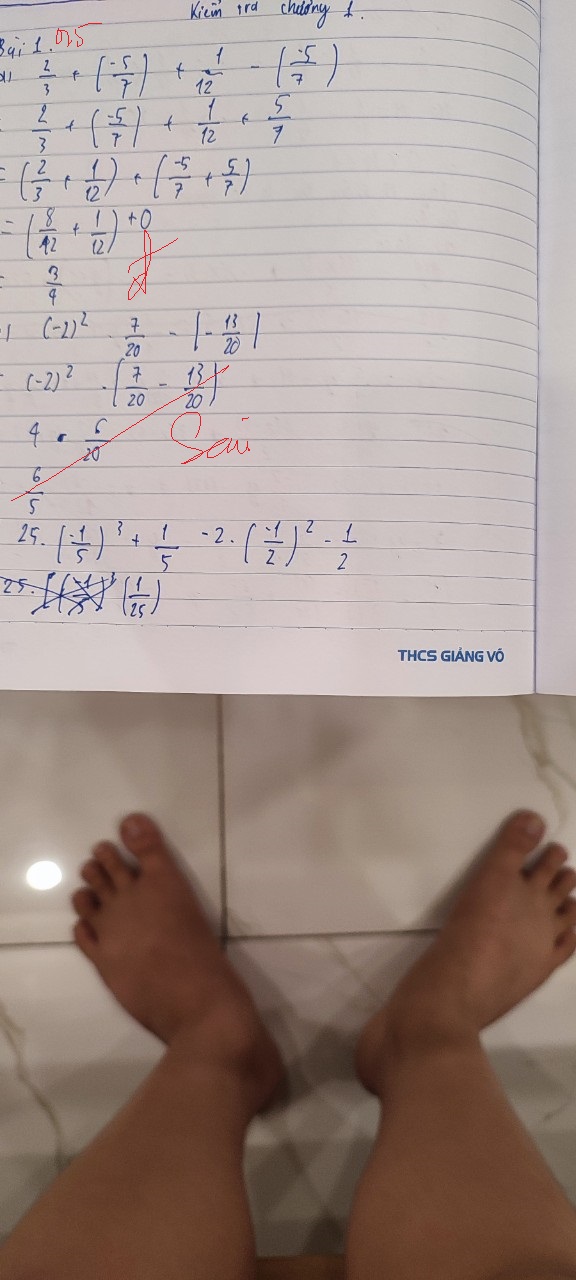 Kiểm tra chương 1.
Bài 1. 0,5
2/3 + (-5/7) + 1/12 - (-5/7)
2/3 + (-5/7) + 1/12 + 5/7
= (2/3 + 1/12) + (-5/7 + 5/7)
= (8/12 + 1/12) + 0
= 3/4 đ
(-2)² . 7/20 - |-13/20|
(-2)² . |7/20 - 13/20|
4 . 6/20 Sai
6/5
25. (-1/5)³ + 1/5 -2. (-1/2)² - 1/2
25. (1/25)
THCS GIẢNG VÕ